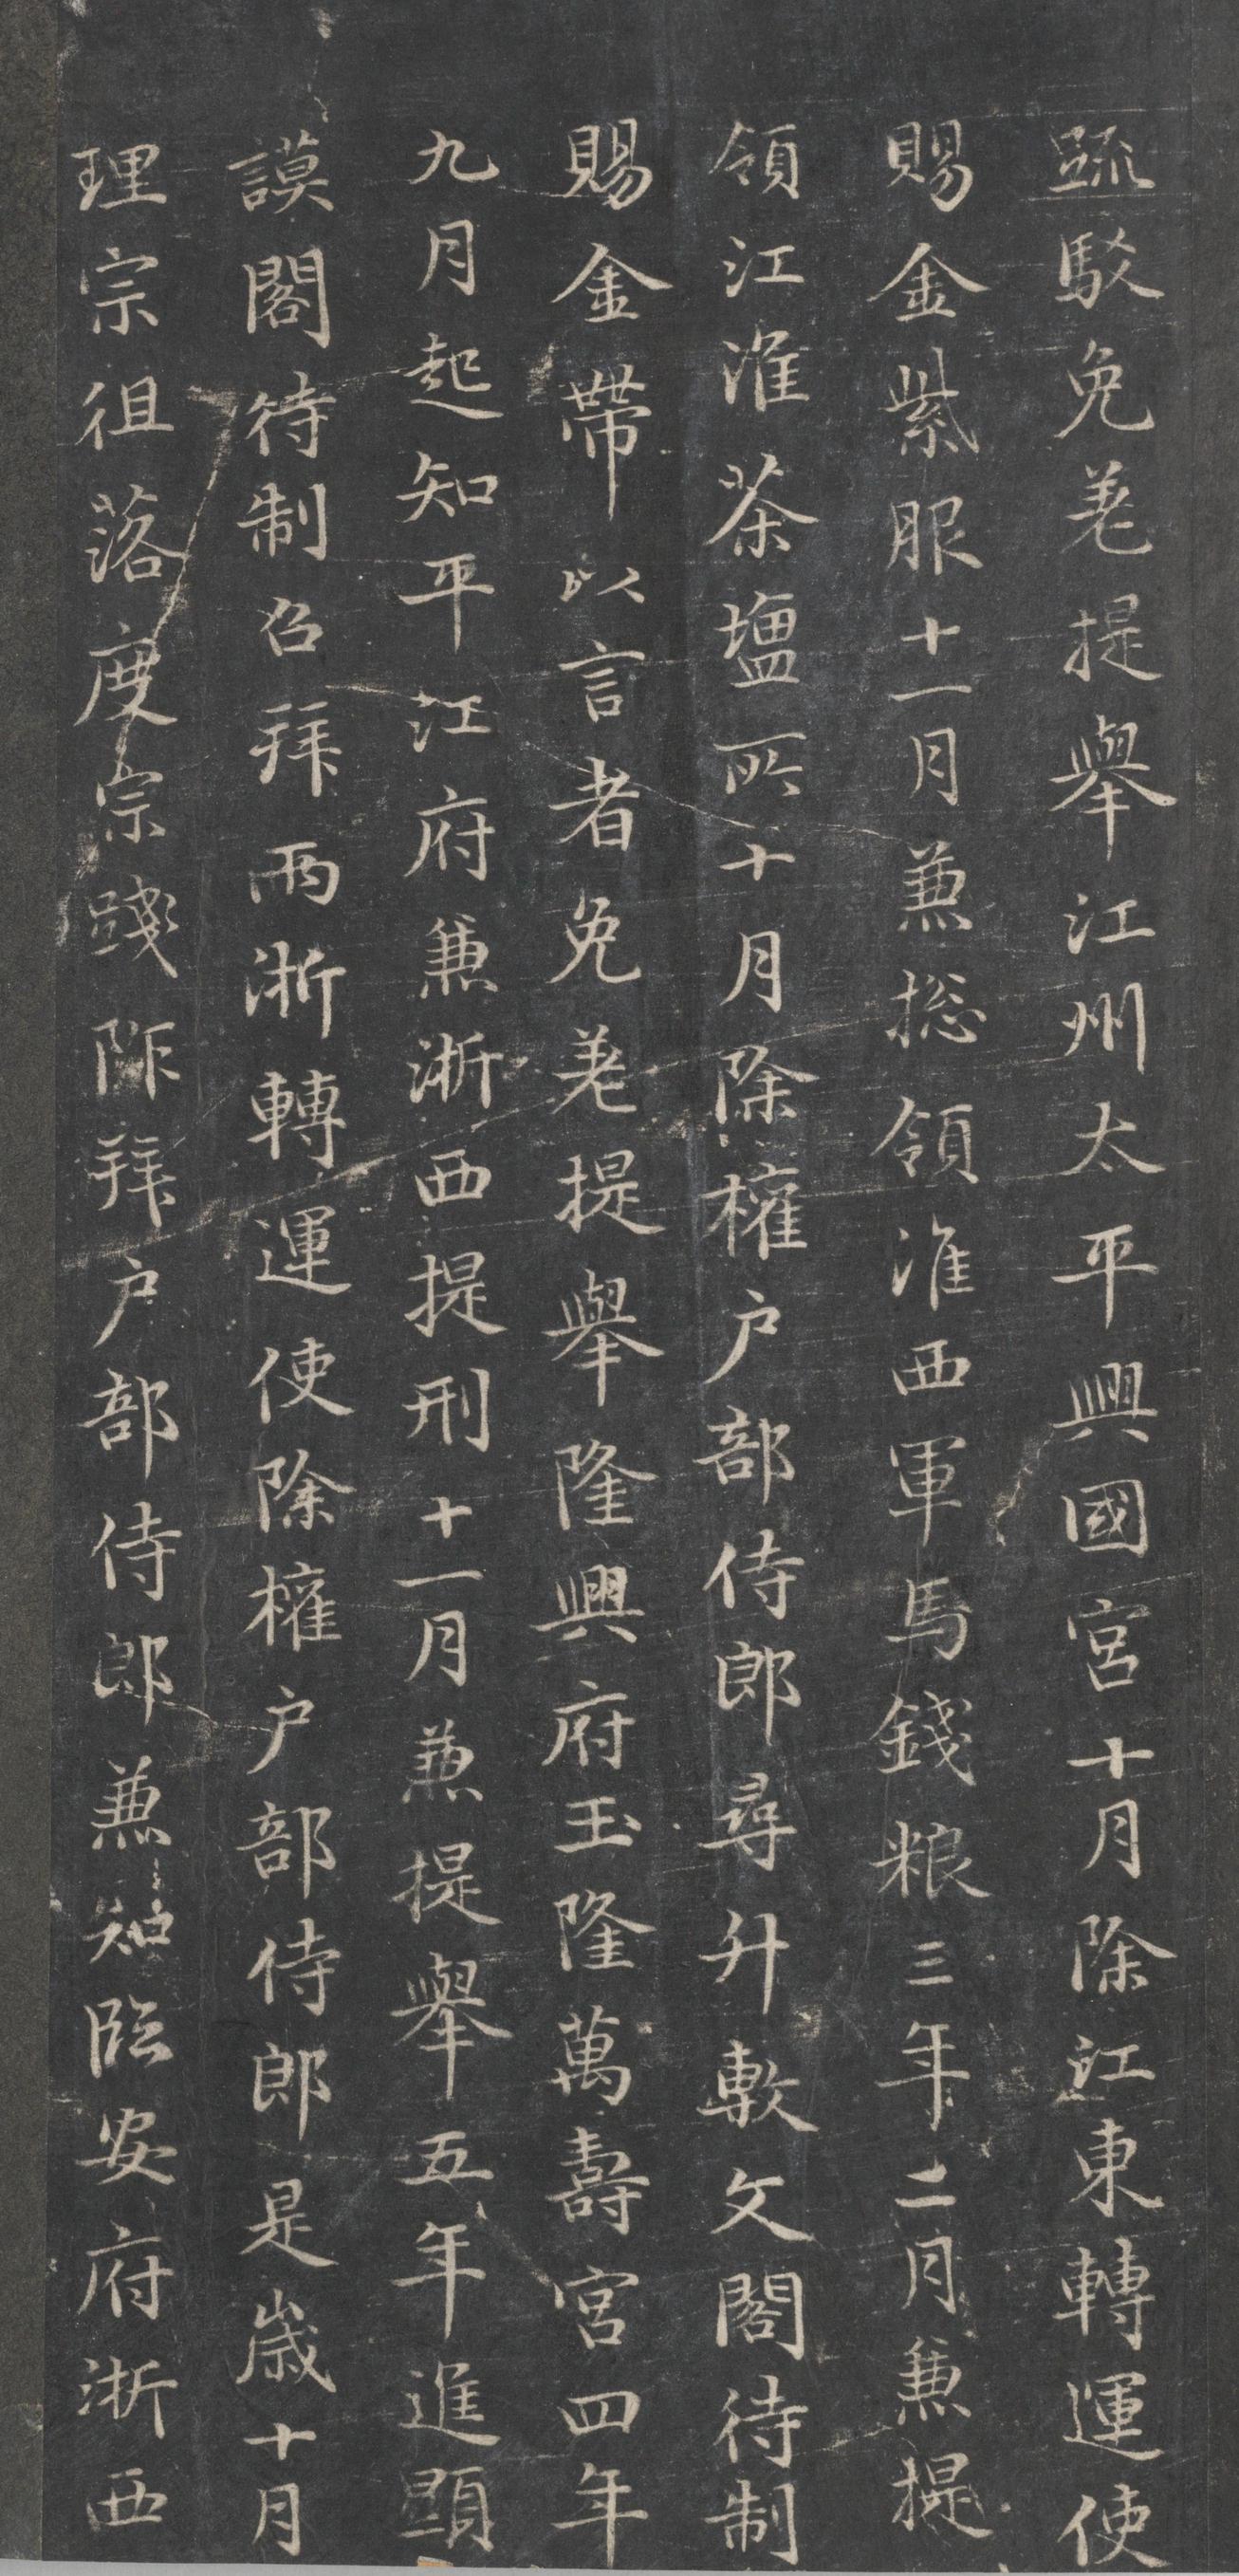 疏駮免差提舉江州太平興國宮十月除江東轉運使
賜金紫服十一月兼揔領淮西軍馬錢粮三年二月兼提
領江淮茶塩所十月除權户部侍郎尋升敷文閣待制
賜金帶以言者免差提舉隆興府玉隆萬壽宮四年
九月起知平江府兼浙西提刑十一月兼提舉五年進顯
謨閣待制召拜兩浙轉運使除權户部侍郎是歲十月
理宗徂落度宗踐阼拜户部侍郎兼知臨安府浙西